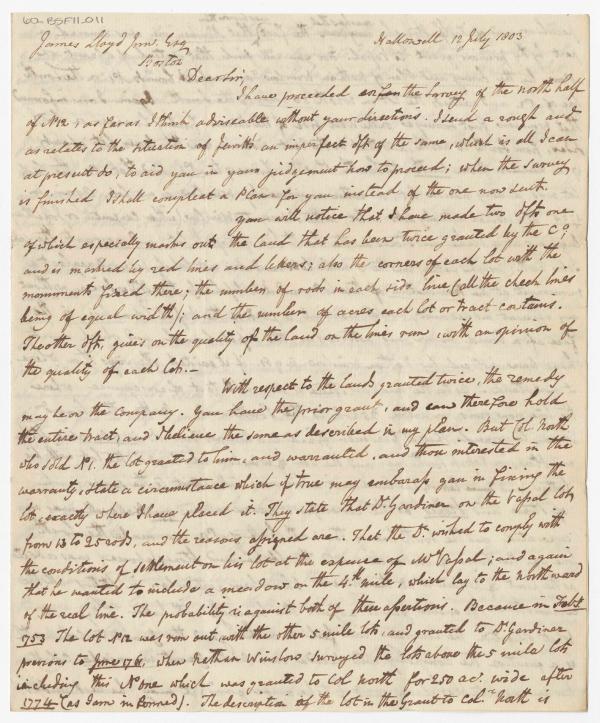 60-BSF11.011
James Lloyd Junr. Esq Hallowell 12 July 1803
Boston
Dear Sir,
I have proceeded on the Survey of the north half
of No 12, as far as I think adviseable without your directions. I send a rough and
as relates to the situation of an imperfect dft of the same, which is all I can
at present do, to aid you in your judgement how to proceed; when the survey
is finished I shall compleat a Plan for you instead of the one now sent.
you will notice that I have made two dfts one
of which especially marks out the land that has been twice granted by the Co;
and is marked by red lines and letters; also the corners of each lot with the
monuments fixed there; the number of rods in each side line (all the check lines
being of equal width); and the number of acres each lot or tract contains.
The other dft, gives on the quality of the land on the lines run, with an opinion of
the quality of each lot.—
With respect to the lands granted twice, the remedy
may be on the Company. You have the prior grant, and can therefore hold
the entire tract, and I believe the same as described in my plan. But Col. North
who sold No 1. the lot granted to him, and warranted, and those interested in the
warranty, state a circumstance which if true may embarass you in fixing the
lot, exactly where I have placed it. They state that Dr. Gardiner on the Vassal lots
from 13 to 25 rods, and the reasons assigned are. That the Dr. wished to comply with
the conditions of settlement on his lot at the expense of Mr Vassal; and again
that he wanted to include a meadow on the 4th mile, which lay to the Northward
of the real line. The probability is against both of these assertions. Because in
1753 The lot No 12 was run out with the other 5 mile lots, and granted to Dr Gardiner
previous to June 1761. when Nathan Winslow surveyed the lots above the 5 mile lots
including this No one which was granted to Col North for 250 ac. wide after
1774 (as I am informed). The description of the lot in the Grant to Col. North is